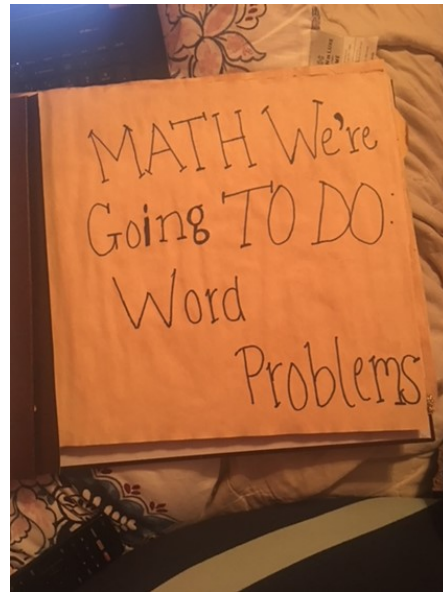 MATH We're
Going TO DO:
Word
Problems